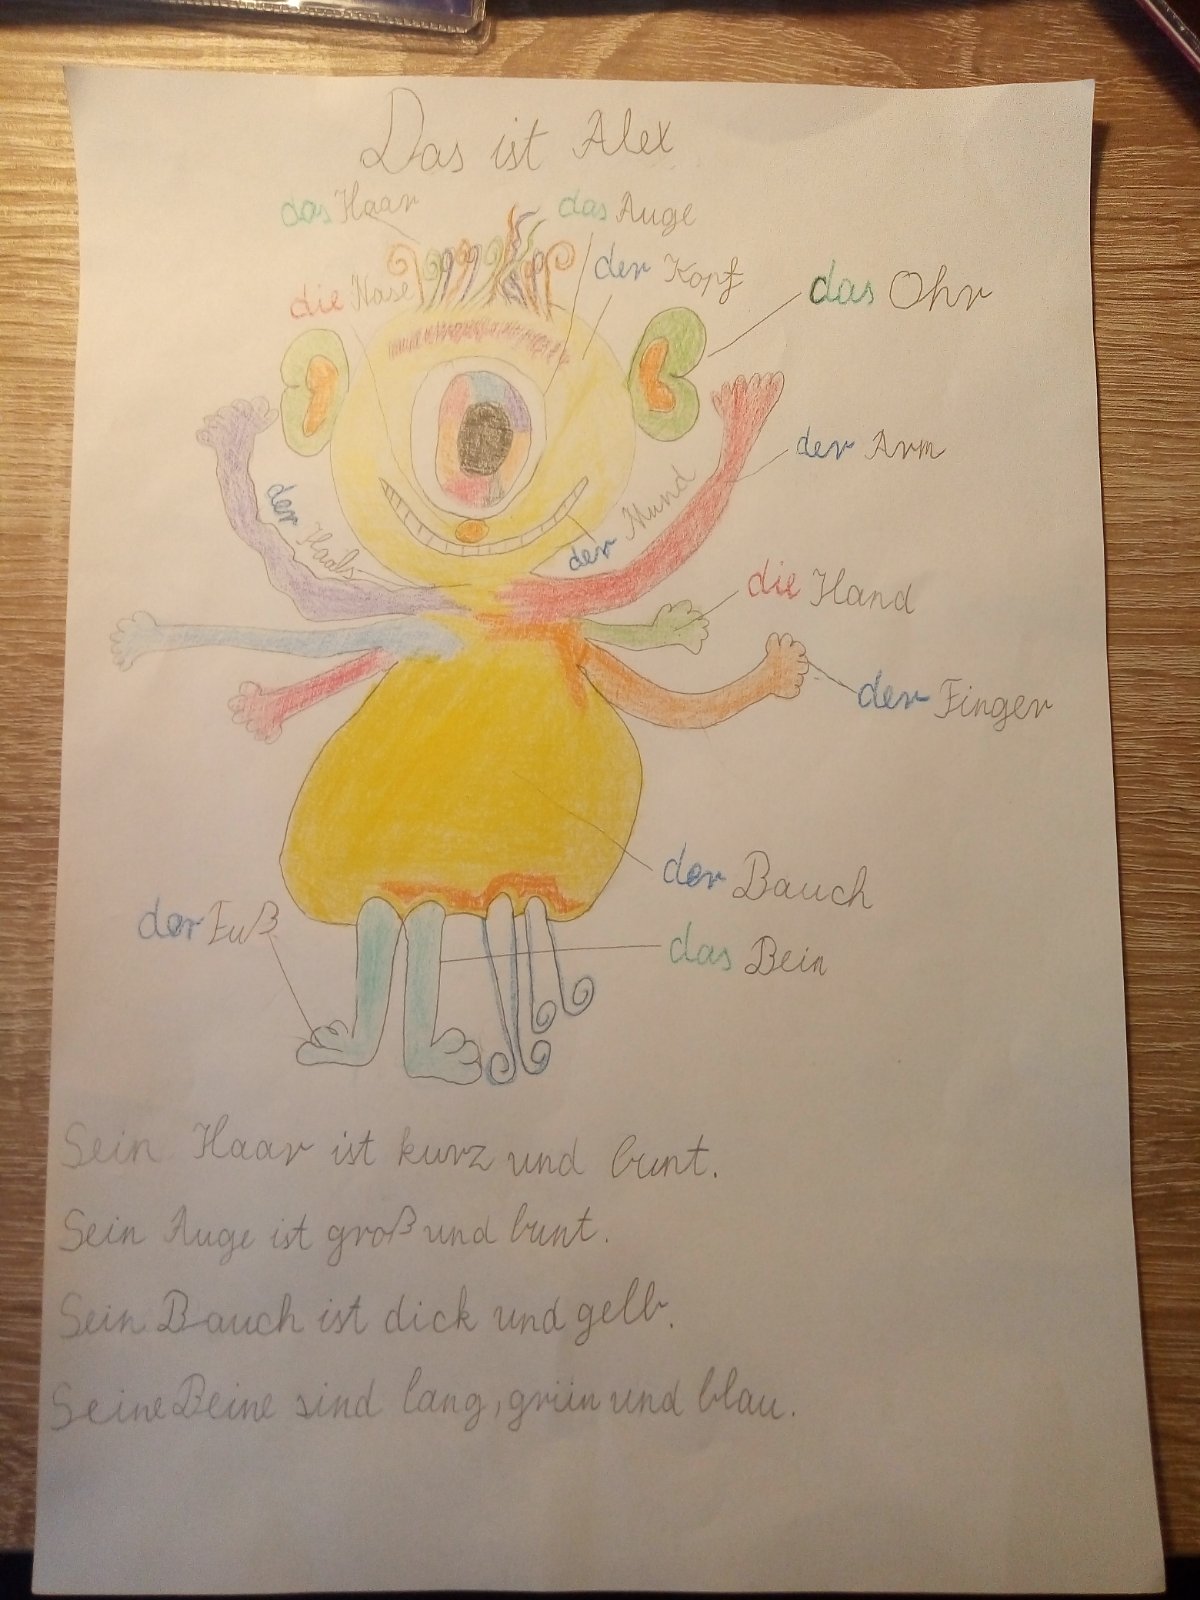 Das ist Alex
das Haar
das Auge
der Kopf
die Nase
das Ohr
der Arm
der Haals
der Mund
die Hand
der Finger
der Bauch
der Fuß
das Bein
Sein Haar ist kurz und bunt.
Sein Auge ist groß und bunt.
Sein Bauch ist dick und gelb.
Seine Beine sind lang, grün und blau.